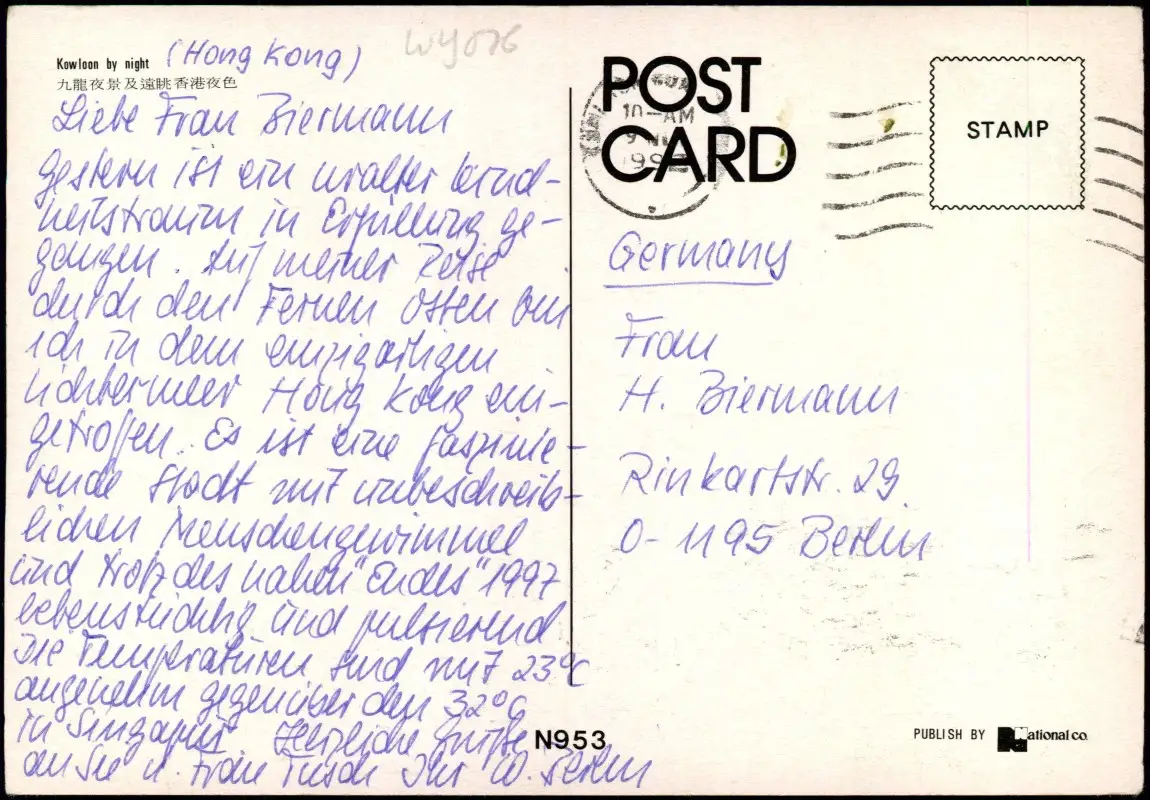 Kowloon by night (Hong Kong)
九龍夜景及遠眺香港夜色
WY076
Liebe Frau Biermann
gestern ist ein uralter Kind-
heitstraum in Erfüllung ge-
gangen. Auf meiner Reise
durch den Fernen Osten bin
ich in dem einzigartigen
Lichtermeer Hong Kong ein-
getroffen. Es ist eine faszinie-
rende Stadt mit unbeschreib-
lichen Menschengewimmel
und trotz des nahen "Endes" 1997
lebenstüchtig und pulsierend
Die Temperaturen sind mit 23°C
angenehm gegenüber den 32°C
in Singapur. Herzliche Grüße
an Sie u. Frau Ihr W.
N953
POST
CARD
10-AM
STAMP
Germany
Frau
H. Biermann
Rinkartstr. 29
O-1195 Berlin
PUBLISH BY National co.